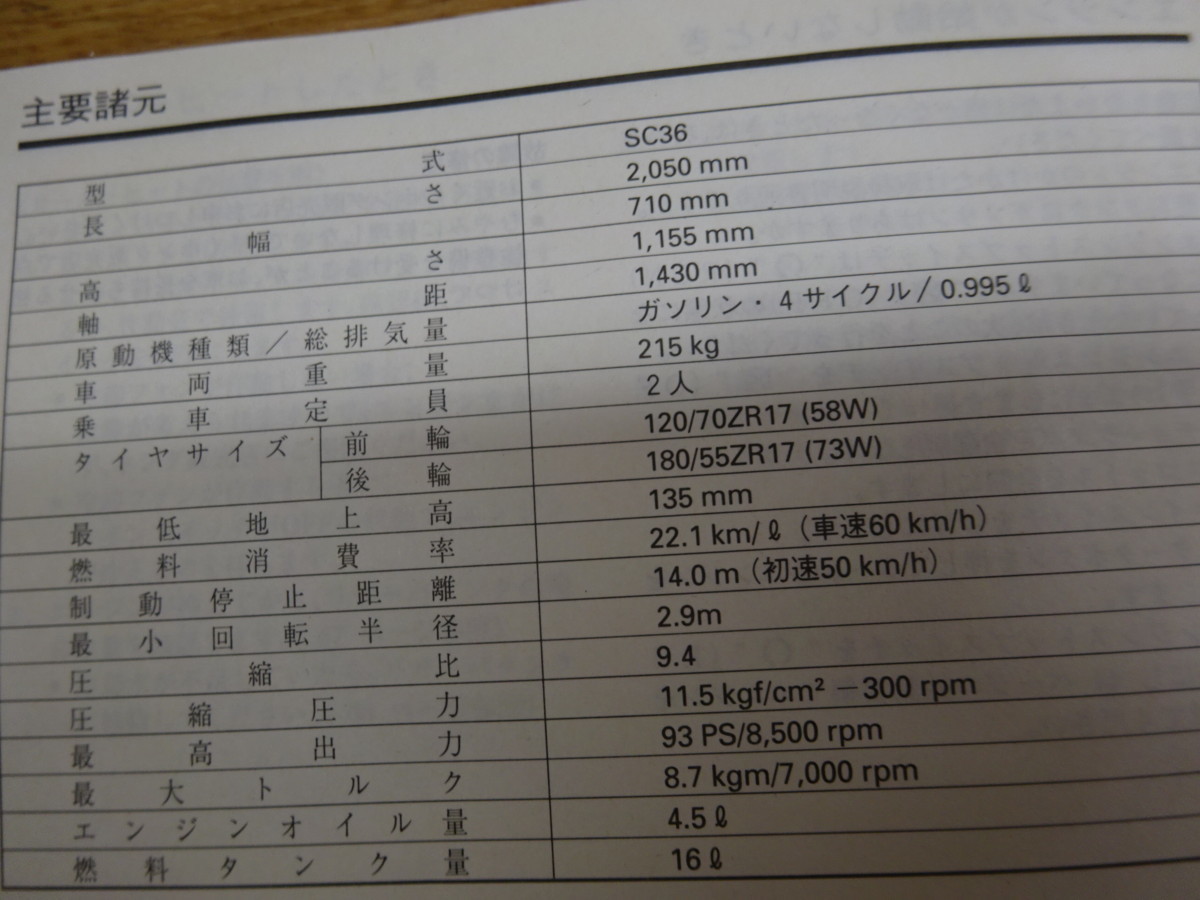 主要諸元
型式 SC36
長さ 2,050 mm
幅 710 mm
高さ 1,155 mm
軸距 1,430 mm
原動機種類／総排気量 ガソリン・4サイクル/0.995ℓ
車両重量 215 kg
乗車定員 2人
タイヤサイズ 前輪 120/70ZR17 (58W)
後輪 180/55ZR17 (73W)
最低地上高 135 mm
燃料消費率 22.1 km/ℓ（車速60 km/h）
制動停止距離 14.0 m（初速50 km/h）
最小回転半径 2.9m
圧縮比 9.4
圧縮圧力 11.5 kgf/cm² －300 rpm
最高出力 93 PS/8,500 rpm
最大トルク 8.7 kgm/7,000 rpm
エンジンオイル量 4.5ℓ
燃料タンク量 16ℓ